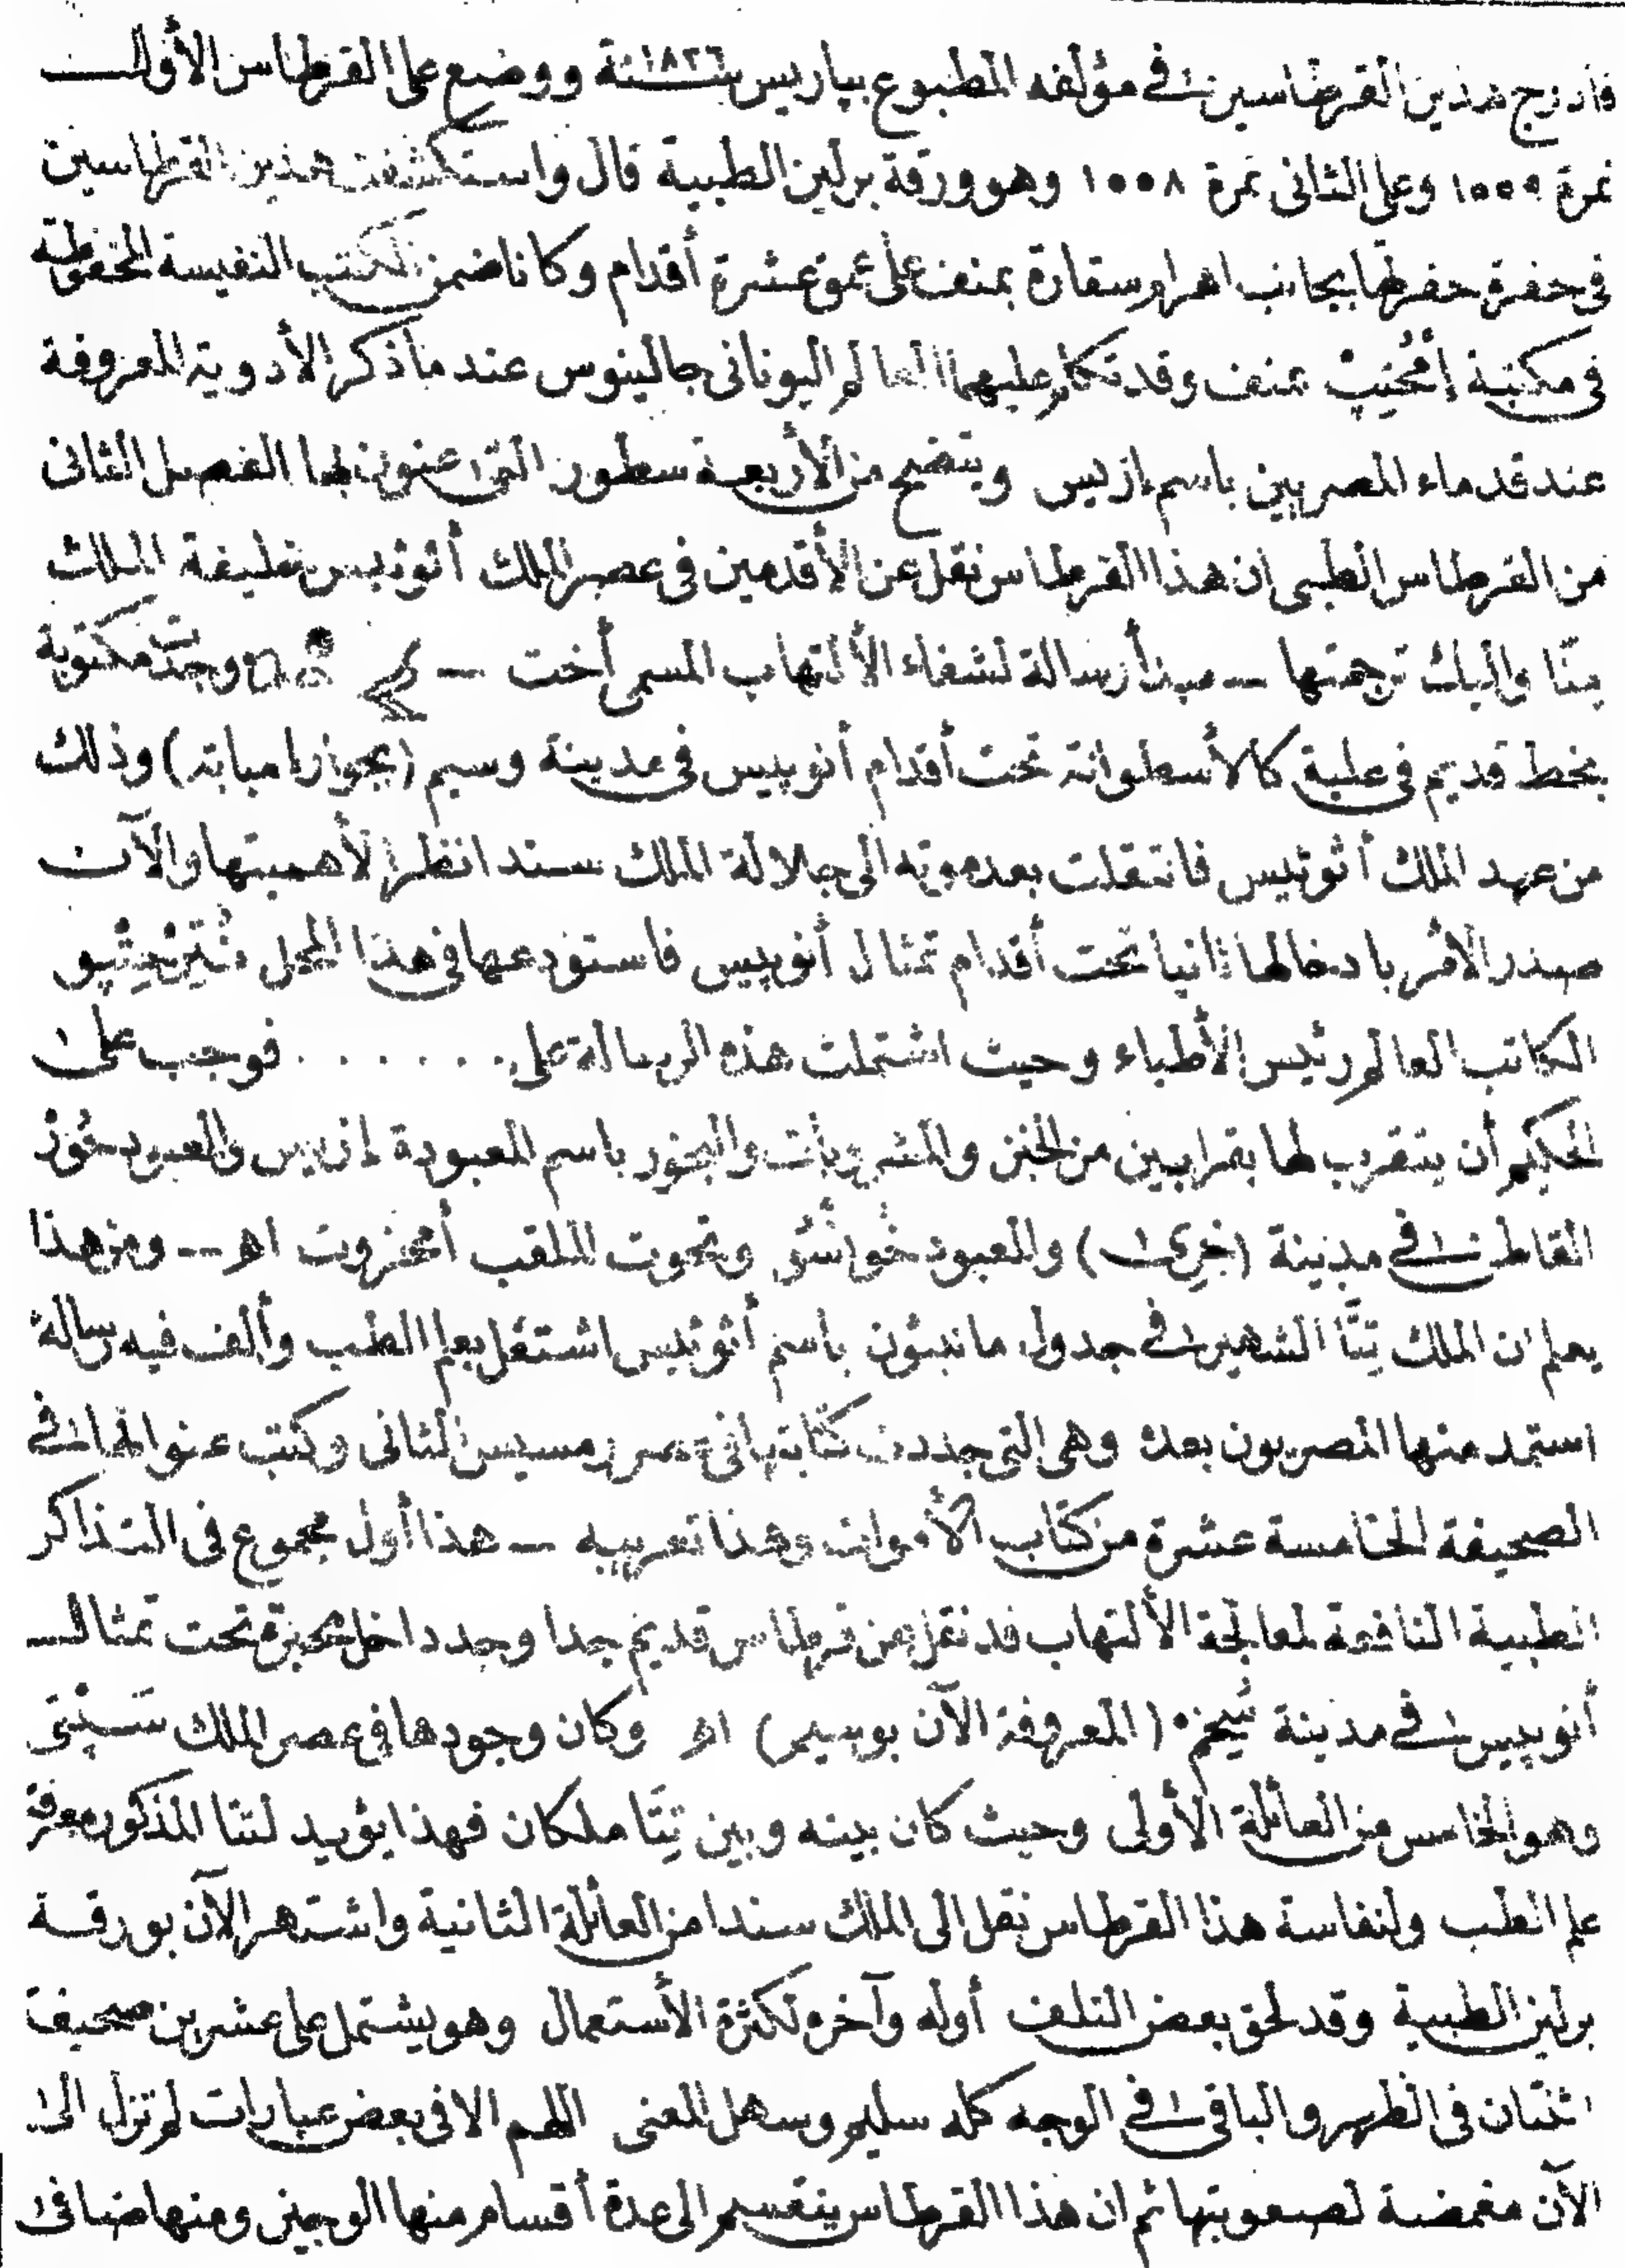 فأدرج هذين القرطاسين في مؤلفه المطبوع بباريس سنة ١٨٢٦ ووضع على القرطاس الأول
نمرة ١٥٥٩ وعلى الثانى نمرة ١٥٥٨ وهو ورقة برلين الطبية قال واستكشفت هذين القرطاسين
فى حفرة حفرتها بجانب اهرام سقارة بمنف على عمق عشرة أقدام وكانا ضمن الكتب النفيسة المحفوظة
فى مكتبة إمْحُتِبْ بمنف وقد تكلم عليهما العالم اليونانى جالينوس عند ما ذكر الأدوية المعروفة
عند قدماء المصريين باسم ازيس ويتضح من الأربعة سطور التى عنون بها الفصل الثانى
من القرطاس الطبى ان هذا القرطاس نقل عن الأقدمين فى عصر الملك أثوثيس خليفة الملك
مِنّا واليك ترجمتها — مبدأ رسالة لشفاء الألتهاب المسمى أخت — وجدت مكتوبة
بخط قديم فى علبة كالأسطوانة تحت أقدام أنوبيس فى مدينة وسيم (بجوار امبابة) وذلك
من عهد الملك أثوثيس فانتقلت بعد موته الى جلالة الملك سندا نظرا لأهميتها والآن
صدر الأمر بادخالها ثانيا تحت أقدام تمثال أنوبيس فاستودعها فى هذا المحل
الكاتب العالم رئيس الأطباء وحيث اشتملت هذه الرسالة على . . . . . . . فوجب على
الحكيم أن يتقرب لها بقرابين من الخبز والمشروبات والبخور باسم المعبودة ازيس والمعبود
القاطن في مدينة والمعبود وتحوت الملقب اه — ومن هذا
يعلم ان الملك تِتَّا الشهير في جدول مانيثون باسم أثوثيس اشتغل بعلم الطب وألف فيه رسالة
استمد منها المصريون بعده وهى التى جددت كتابتها فى عصر رمسيس الثانى وكتب عنوانها في
الصحيفة الخامسة عشرة من كتاب الأموات وهذا تعريبه — هذا أول مجموع فى التذاكر
الطبية النافعة لمعالجة الألتهاب قد نقل من قرطاس قديم جدا وجد داخل محبرة تحت تمثال
أنوبيس في مدينة (المعروفة الآن بوسيم) اه وكان وجودها فى عصر الملك
وهو الخامس من العائلة الأولى وحيث كان بينه وبين تِتَّا ملكان فهذا يؤيد لتتا المذكور معرفة
علم الطب ولنفاسة هذا القرطاس نقل الى الملك سندا من العائلة الثانية واشتهر الآن بورقة
برلين الطبية وقد لحق بعض التلف أوله وآخره لكثرة الأستعمال وهو يشتمل على عشرين صحيفة
اثنتان فى الظهر والباقى في الوجه كله سليم وسهل المعنى اللهم الا فى بعض عبارات لم تزل الى
الآن مغمضة لصعوبتها ثم ان هذا القرطاس ينقسم الى عدة أقسام منها الوجيز ومنها ضافى